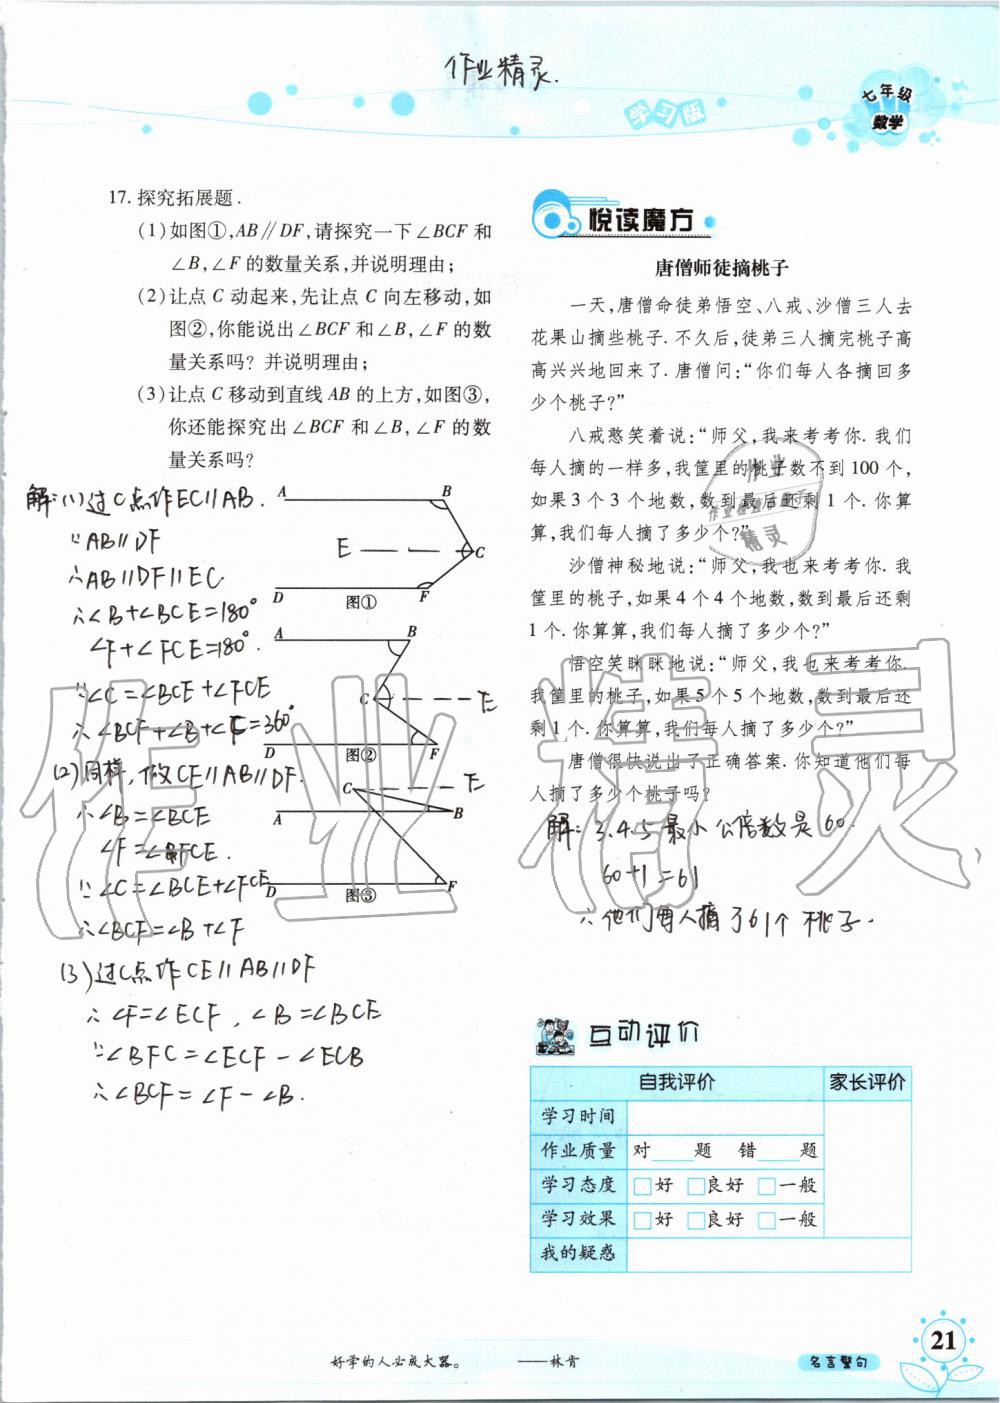 作业精灵.
学习版
七年级
数学
17. 探究拓展题.
(1)如图①,AB∥DF,请探究一下∠BCF 和
∠B,∠F 的数量关系,并说明理由;
(2)让点 C 动起来,先让点 C 向左移动,如
图②,你能说出∠BCF 和∠B,∠F 的数
量关系吗? 并说明理由;
(3)让点 C 移动到直线 AB 的上方,如图③,
你还能探究出∠BCF 和∠B,∠F 的数
量关系吗?
解:(1)过C点作EC∥AB.
∵AB∥DF
∴AB∥DF∥EC
∴∠B+∠BCE=180°
∠F+∠FCE=180°
∵∠C=∠BCE+∠FCE
∴∠BCF+∠B+∠F=360°
(2)同样,做CE∥AB∥DF.
∴∠B=∠BCE
∠F=∠FCE.
∵∠C=∠BCE+∠FCE
∴∠BCF=∠B+∠F
(3)过C点作CE∥AB∥DF
∴∠F=∠ECF,∠B=∠BCE
∵∠BFC=∠ECF-∠ECB
∴∠BCF=∠F-∠B.
A B
E C
D 图① F
A B
C E
D 图② F
C E
A B
D 图③ F
悦读魔方
唐僧师徒摘桃子
一天,唐僧命徒弟悟空、八戒、沙僧三人去
花果山摘些桃子. 不久后,徒弟三人摘完桃子高
高兴兴地回来了. 唐僧问:“你们每人各摘回多
少个桃子?”
八戒憨笑着说:“师父,我来考考你. 我们
每人摘的一样多,我筐里的桃子数不到 100 个,
如果 3 个 3 个地数,数到最后还剩 1 个. 你算
算,我们每人摘了多少个?”
沙僧神秘地说:“师父,我也来考考你. 我
筐里的桃子,如果 4 个 4 个地数,数到最后还剩
1 个. 你算算,我们每人摘了多少个?”
悟空笑眯眯地说:“师父,我也来考考你.
我筐里的桃子,如果 5 个 5 个地数,数到最后还
剩 1 个. 你算算,我们每人摘了多少个?”
唐僧很快说出了正确答案. 你知道他们每
人摘了多少个桃子吗?
解:3.4.5最小公倍数是60.
60+1=61
∴他们每人摘了61个桃子.
互动评价
自我评价 家长评价
学习时间
作业质量 对____题 错____题
学习态度 □好 □良好 □一般
学习效果 □好 □良好 □一般
我的疑惑
好学的人必成大器。 ——林肯
名言警句
21
作业精灵